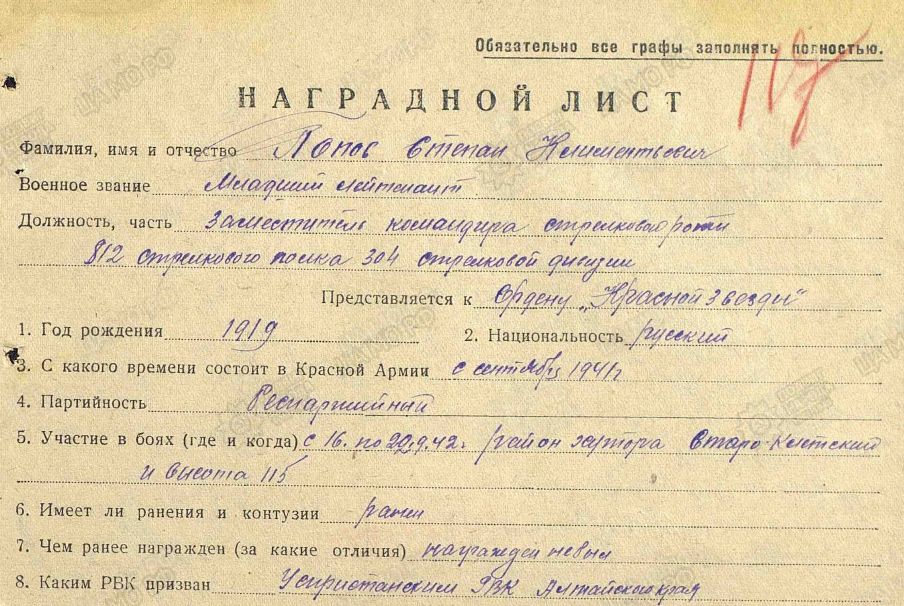 Обязательно все графы заполнять полностью.
НАГРАДНОЙ ЛИСТ
Фамилия, имя и отчество Попов Степан Климентьевич
Военное звание Младший лейтенант
Должность, часть Заместитель командира стрелковой роты
812 стрелкового полка 304 стрелковой дивизии
Представляется к Ордену „Красной Звезды"
1. Год рождения 1919 2. Национальность русский
3. С какого времени состоит в Красной Армии с сентября 1941г
4. Партийность Беспартийный
5. Участие в боях (где и когда) с 16. по 22.9.42г район хутора Старо-
и высота 115
6. Имеет ли ранения и контузии ранен
7. Чем ранее награжден (за какие отличия) награжден не был
8. Каким РВК призван Успристанским РВК Алтайского края
ЦАМО РФ